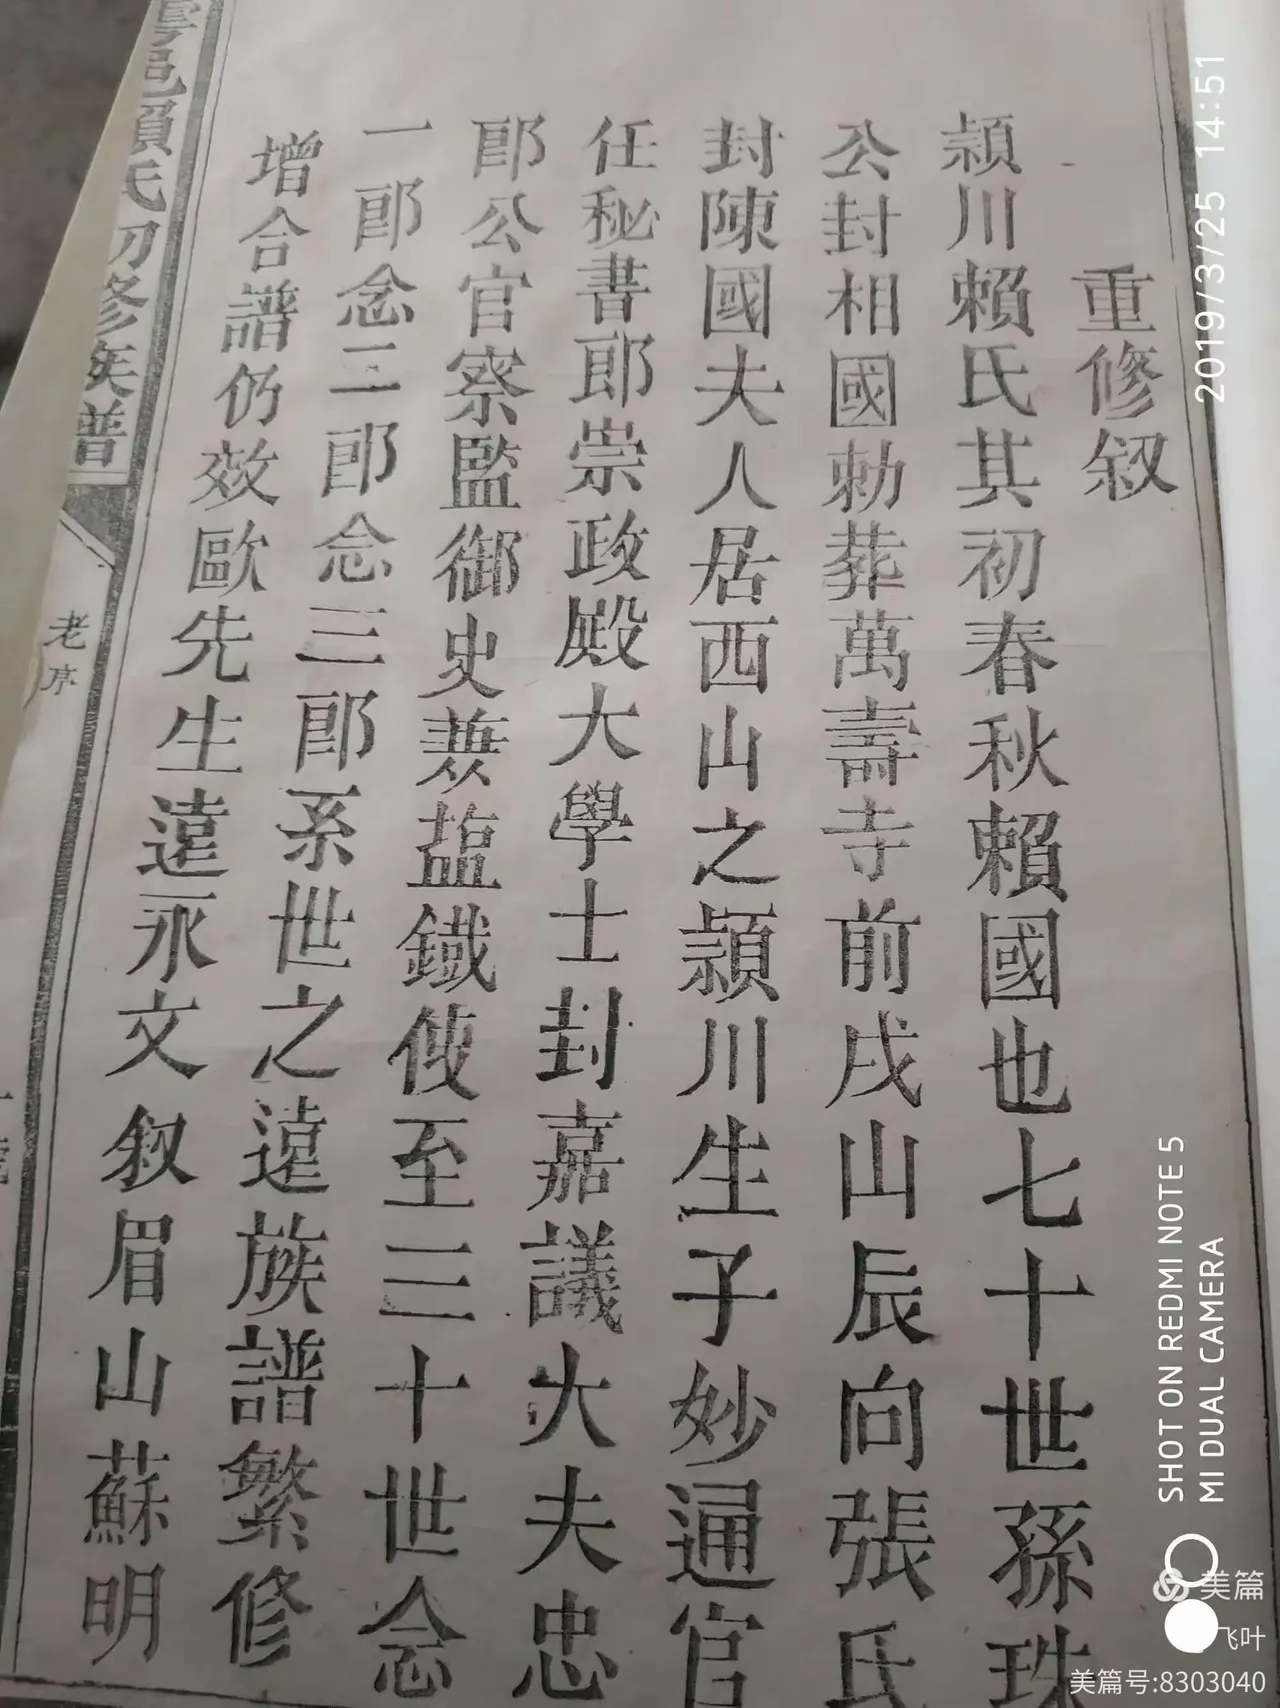 重修叙
潁川賴氏其初春秋賴國也七十世孫珠
公封相國勅葬萬壽寺前戌山辰向張氏
封陳國夫人居西山之潁川生子妙通官
任秘書郎崇政殿大學士封嘉議大夫忠
郎公官察監御史兼塩鐵使至三十世念
一郎念二郎念三郎系世之遠族譜繁修
增合譜仍效歐先生遠永文叙眉山蘇明
雲邑賴氏初修族譜
老序
2019/3/25 14:51
SHOT ON REDMI NOTE 5
MI DUAL CAMERA
美篇
飞叶
美篇号:8303040